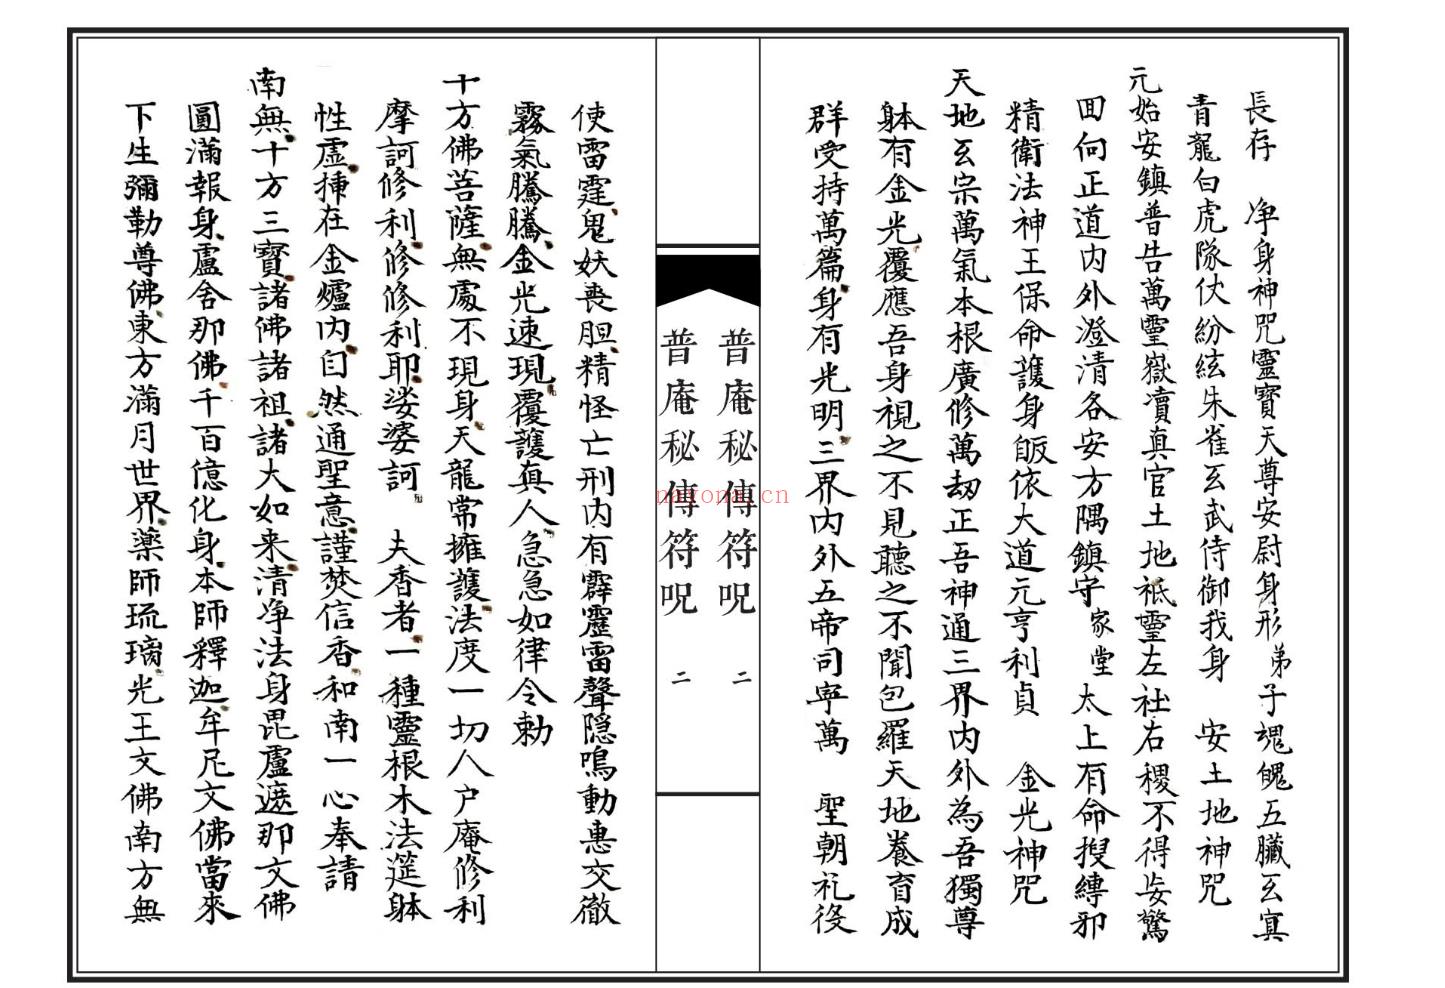 長存　净身神咒靈寶天尊安尉身形弟子魂魄五臟玄寞
青龍白虎隊伏紛絃朱雀玄武侍御我身　安土地神咒
元始安鎮普告萬靈嶽瀆真官土地祇靈左社右稷不得妄驚
回向正道内外澄清各安方隅鎮守家堂太上有命搜縛邪
精衛法神王保命護身皈依大道元亨利貞　金光神咒
天地玄宗萬氣本根廣修萬劫正吾神通三界内外為吾獨尊
躰有金光覆應吾身視之不見聽之不聞包羅天地養育成
群受持萬篇身有光明三界内外五帝司寧萬　聖朝礼役
普庵秘傳符呪　二
普庵秘傳符呪　二
nayona.cn
使雷霆鬼妖喪胆精怪亡刑内有霹靂雷聲隐鳴動惠交徹
霧氣騰騰金光速現覆護真人急急如律令勅
十方佛菩薩無處不現身天龍常擁護法度一切人户庵修利
摩訶修利修修利耶娑婆訶　夫香者一種靈根木法筵躰
性虚揷在金爐内自然通聖意謹焚信香和南一心奉請
南無十方三寳諸佛諸祖諸大如来清净法身毘盧遮那文佛
圓滿報身盧舍那佛千百億化身本師釋迦牟尼文佛當來
下生彌勒尊佛東方滿月世界藥師琉璃光王文佛南方無